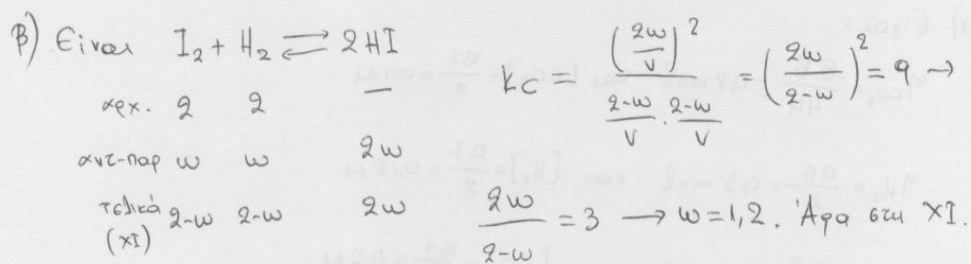 β) Είναι I₂ + H₂ ⇌ 2HI
αρχ. 2 2 —
αντ-παρ ω ω 2ω
τελικά 2-ω 2-ω 2ω
(ΧΙ)
kc = (2ω/V)² / (2-ω/V · 2-ω/V) = (2ω/2-ω)² = 9 →
2ω/2-ω = 3 → ω = 1,2. Άρα στη ΧΙ.